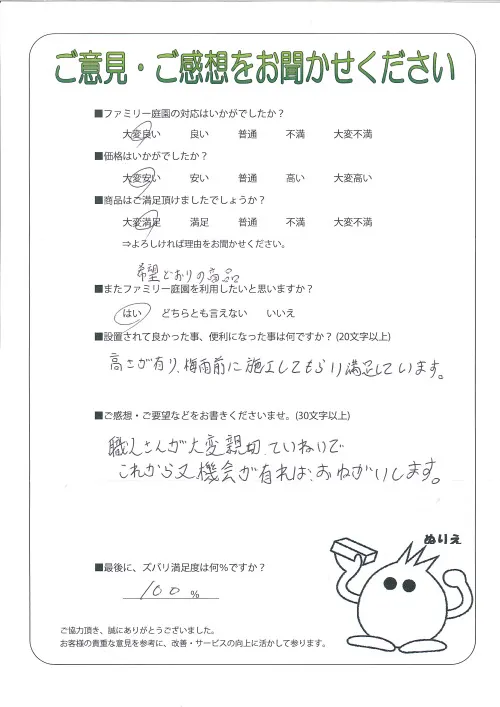 ご意見・ご感想をお聞かせください
■ファミリー庭園の対応はいかがでしたか？
大変良い 良い 普通 不満 大変不満
■価格はいかがでしたか？
大変安い 安い 普通 高い 大変高い
■商品はご満足頂けましたでしょうか？
大変満足 満足 普通 不満 大変不満
⇒よろしければ理由をお聞かせください。
希望どおりの商品
■またファミリー庭園を利用したいと思いますか？
はい どちらとも言えない いいえ
■設置されて良かった事、便利になった事は何ですか？(20文字以上)
高さが有り、梅雨前に施工してもらい満足しています。
■ご感想・ご要望などをお書きくださいませ。(30文字以上)
職人さんが大変親切、ていねいで
これから又、機会が有れば、おねがいします。
ぬりえ
■最後に、ズバリ満足度は何％ですか？
100 %
ご協力頂き、誠にありがとうございました。
お客様の貴重な意見を参考に、改善・サービスの向上に活かして参ります。